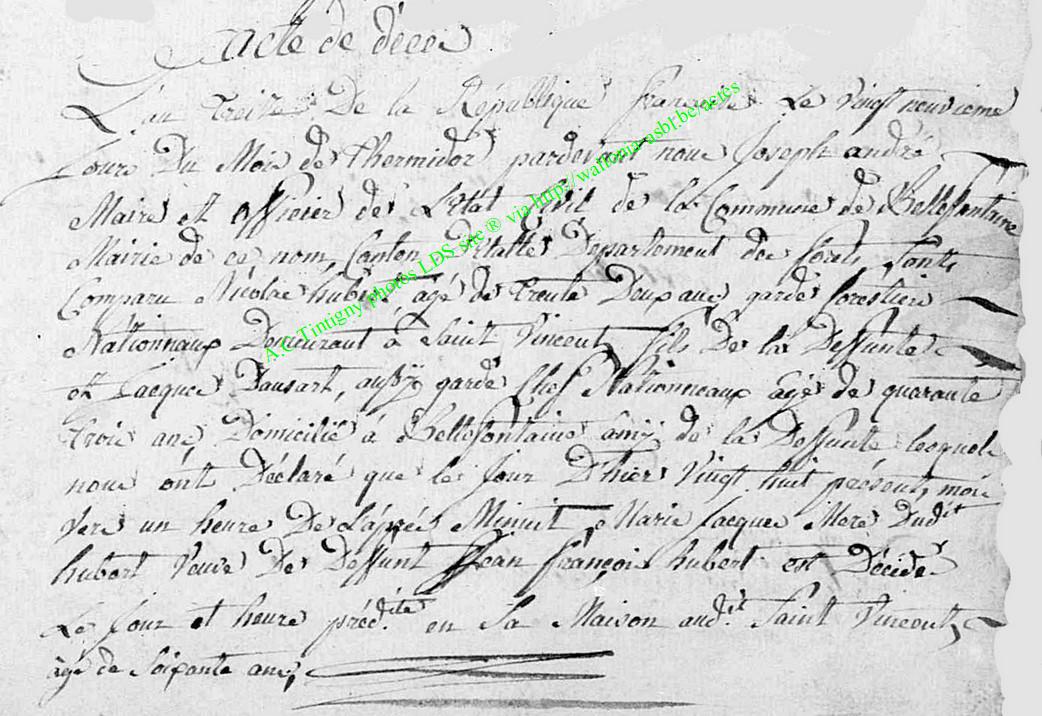 acte de décès
L'an treize De la République française Le Vingt neuvieme
Jour Du Mois de Thermidor pardevant nous Joseph andré
Maire et officier de L'Etat Civil de la Commune de Bellefontaine
Mairie de ce nom, Canton D'Etalle Departement des forets, sont
Comparu Nicolas hubert âgé de trente Deux ans garde forestier
Nationnaux Demeurant à Saint Vincent, fils De la Deffunte
et Jacques Dausart, aussy garde Chef Nationneaux âgé de quarante
trois ans Domicilié à Bellefontaine amy de la Deffunte lesquels
nous ont Déclaré que le Jour D'hier Vingt huit présent, mois
Vers un heure De L'après Minuit, Marie Jacques Mere Dudit
hubert Veuve De Deffunt Jean françois hubert est Décédé
Le Jour et heure préd.ite en Sa Maison aud.it Saint Vincent,
âgé de Soixante ans,
A.C. Tintigny photos LDS site ® via http://wallonia-asbl.be/actes